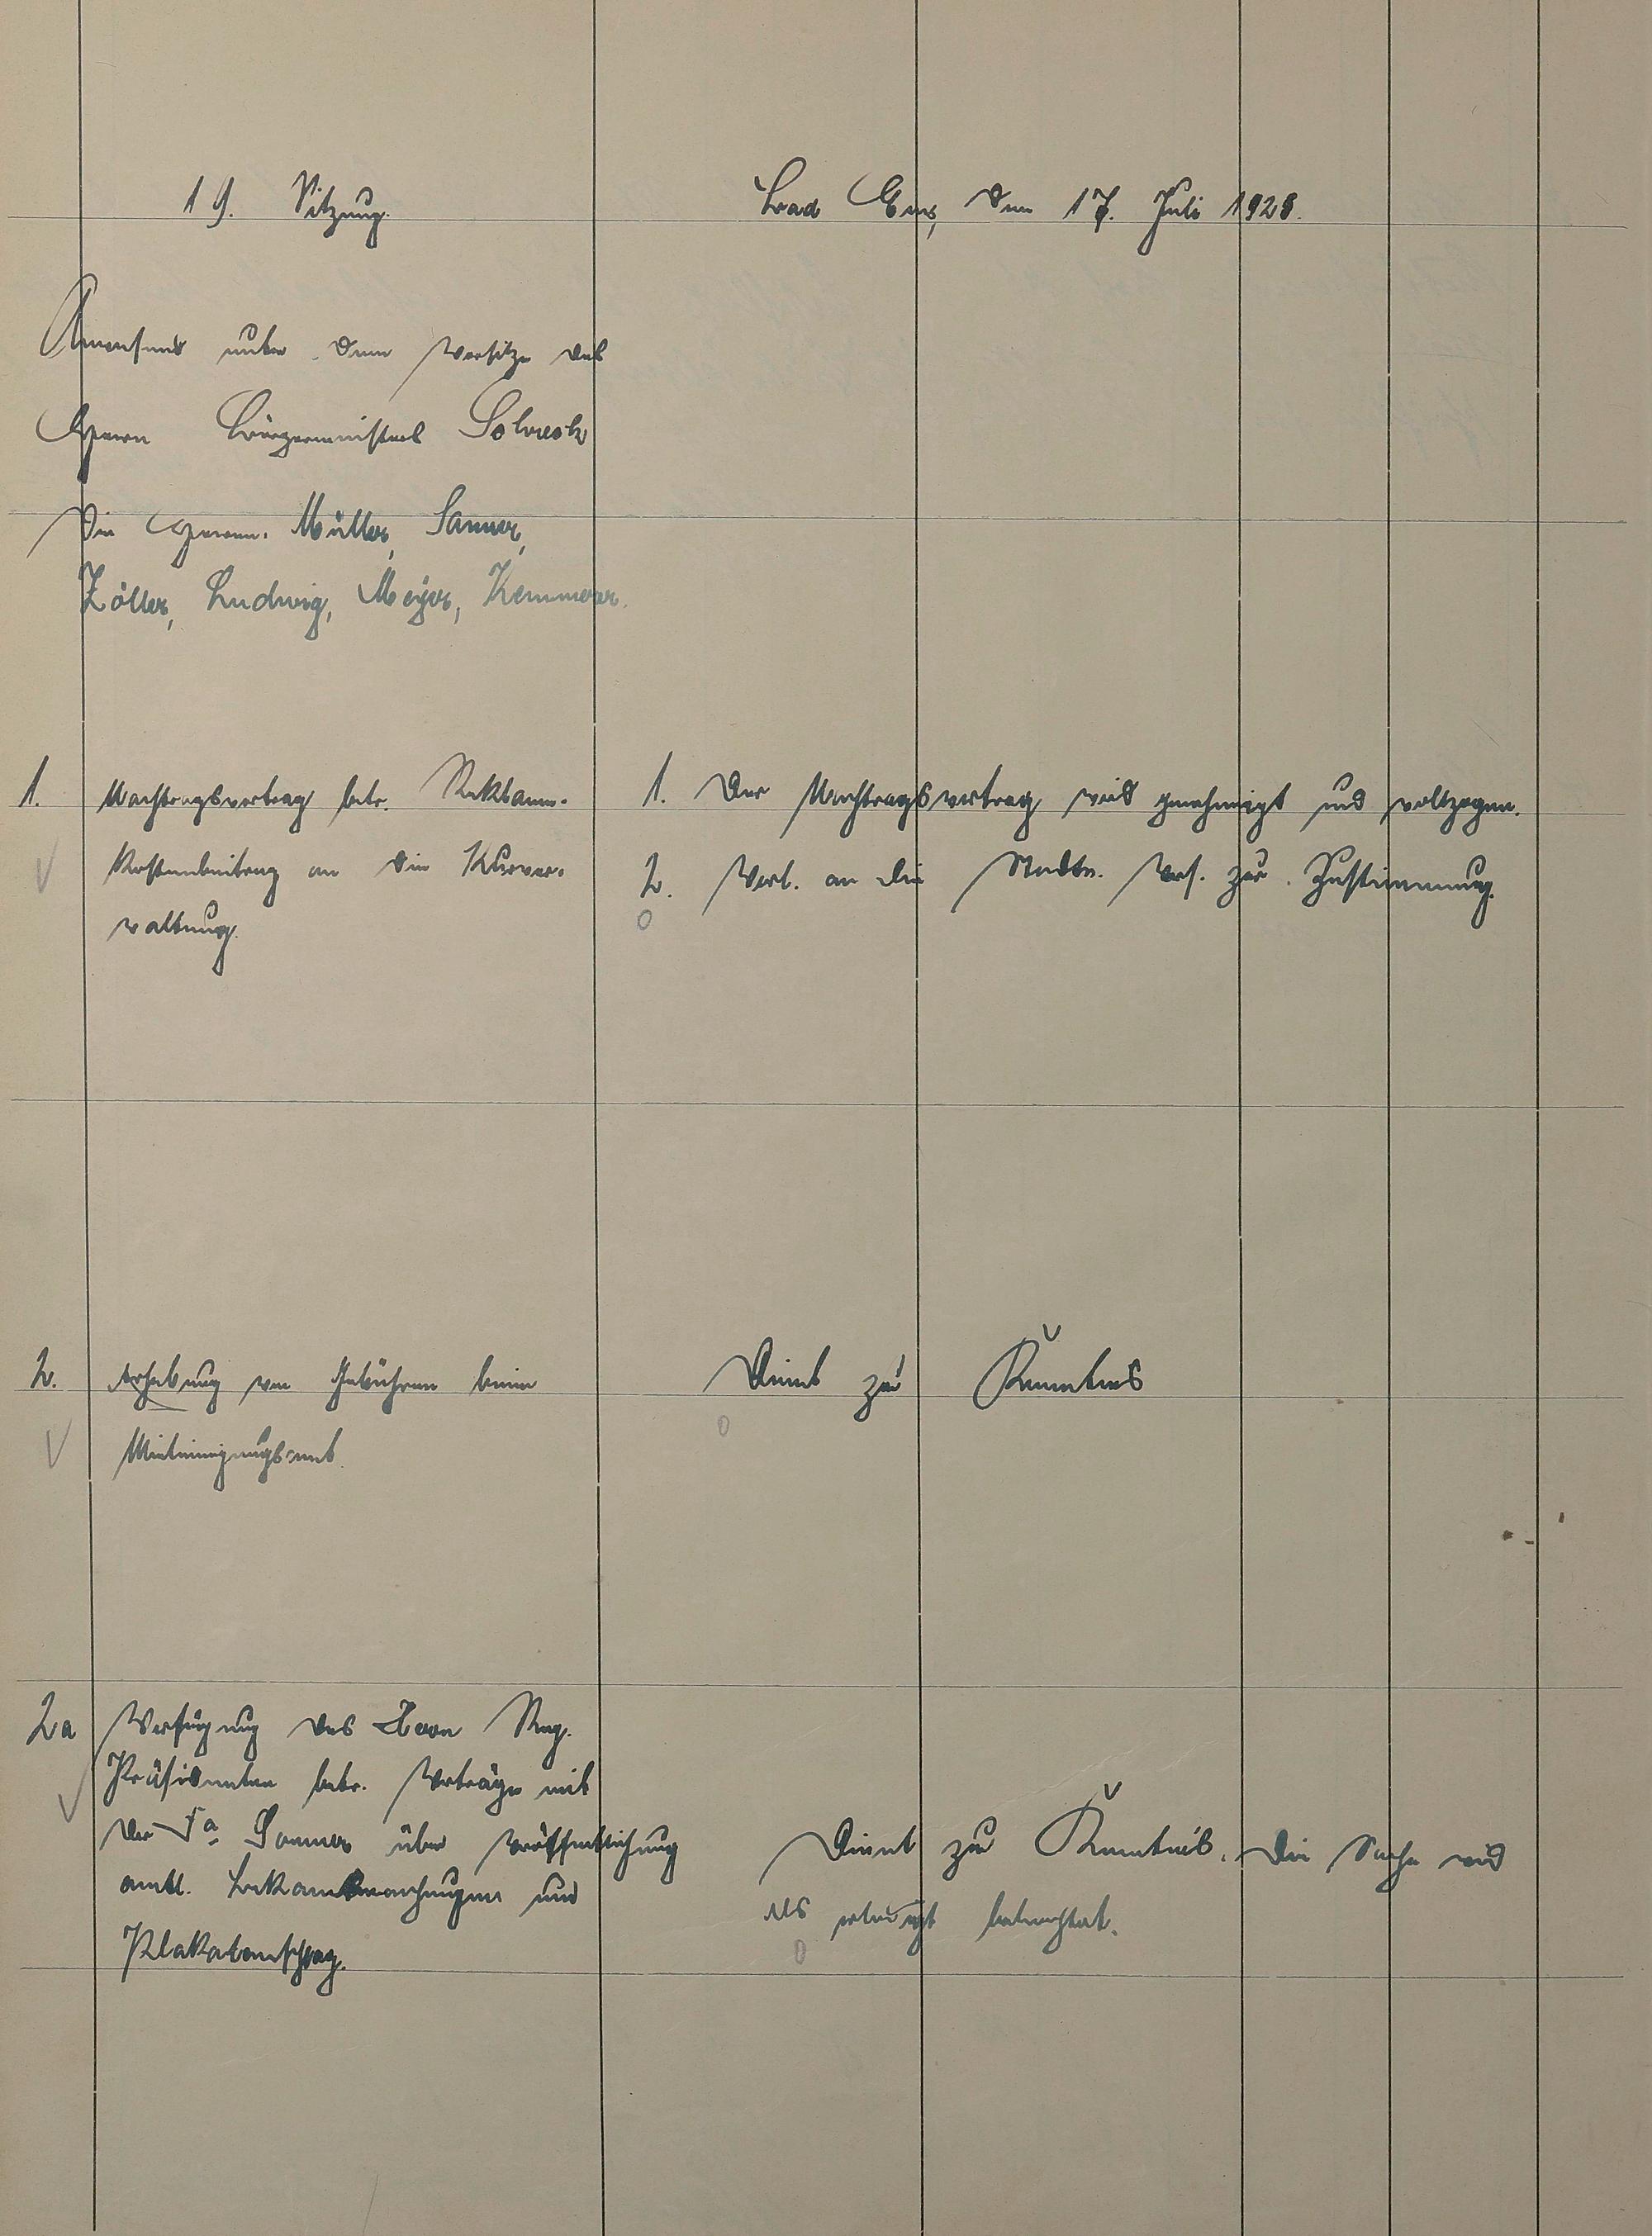 19. Sitzung.
Bad Ems, den 17. Juli 1928.
Anwesend unter dem Vorsitze des
Herrn Bürgermeisters
die Herren: Müller, Sanner,
Zöller, Ludwig, Meyer, Kemmerer.
1. Nachtragsvertrag betr. Reklame-
Kostenbeitrag an die Kurver-
waltung.
1. Der Nachtragsvertrag wird genehmigt und vollzogen.
2. Vorl. an die Stadtv. Vers. zur Zustimmung.
2. Erhebung von Gebühren beim
Mieteinigungsamt.
Dient zur Kenntnis
2a Verfügung des Herrn Reg.
Präsidenten betr. Verträge mit
der Fa. Sommer über Veröffentlichung
amtl. Bekanntmachungen und
Plakatanschlag.
Dient zur Kenntnis. Die Sache wird
als erledigt betrachtet.